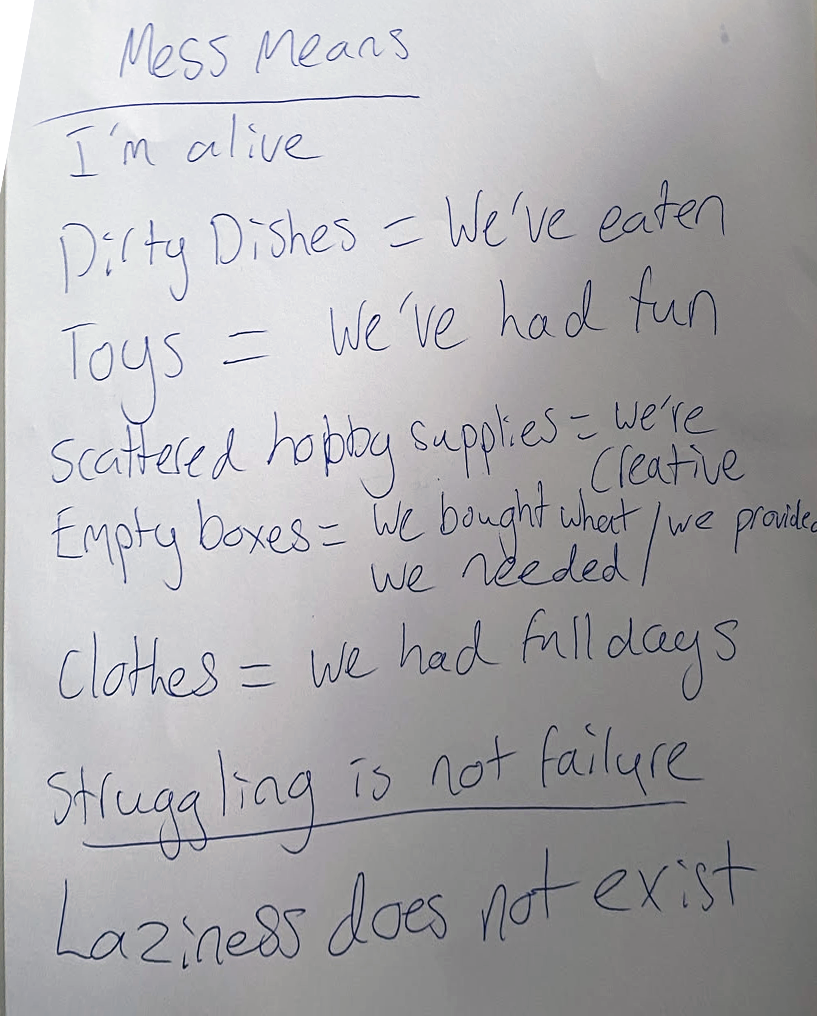 Mess Means
I'm alive
Dirty Dishes = We've eaten
Toys = We've had fun
Scattered hobby supplies = we're
Creative
Empty boxes = We bought what / we provided
we needed /
Clothes = we had full days
Struggling is not failure
Laziness does not exist